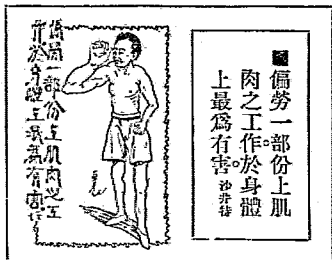 偏勞一部份上肌
肉之工作於身體
上最爲有害。
偏勞一部份上肌肉之工
作於身體上最爲有害